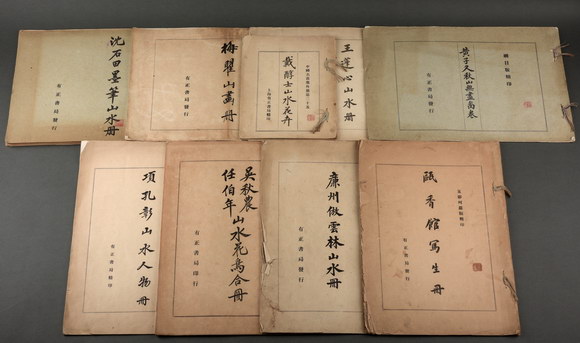 沈石田墨筆山水冊
有正書局發行
梅瞿山畫冊
有正書局發行
戴醇士山水花卉
王蓬心山水冊
黃子久秋山無盡圖卷
有正書局發行
項孔彰山水人物冊
有正書局發行
吳秋農
任伯年山水花鳥合冊
有正書局印行
廉州倣雲林山水冊
有正書局發行
甌香館寫生冊
有正書局發行